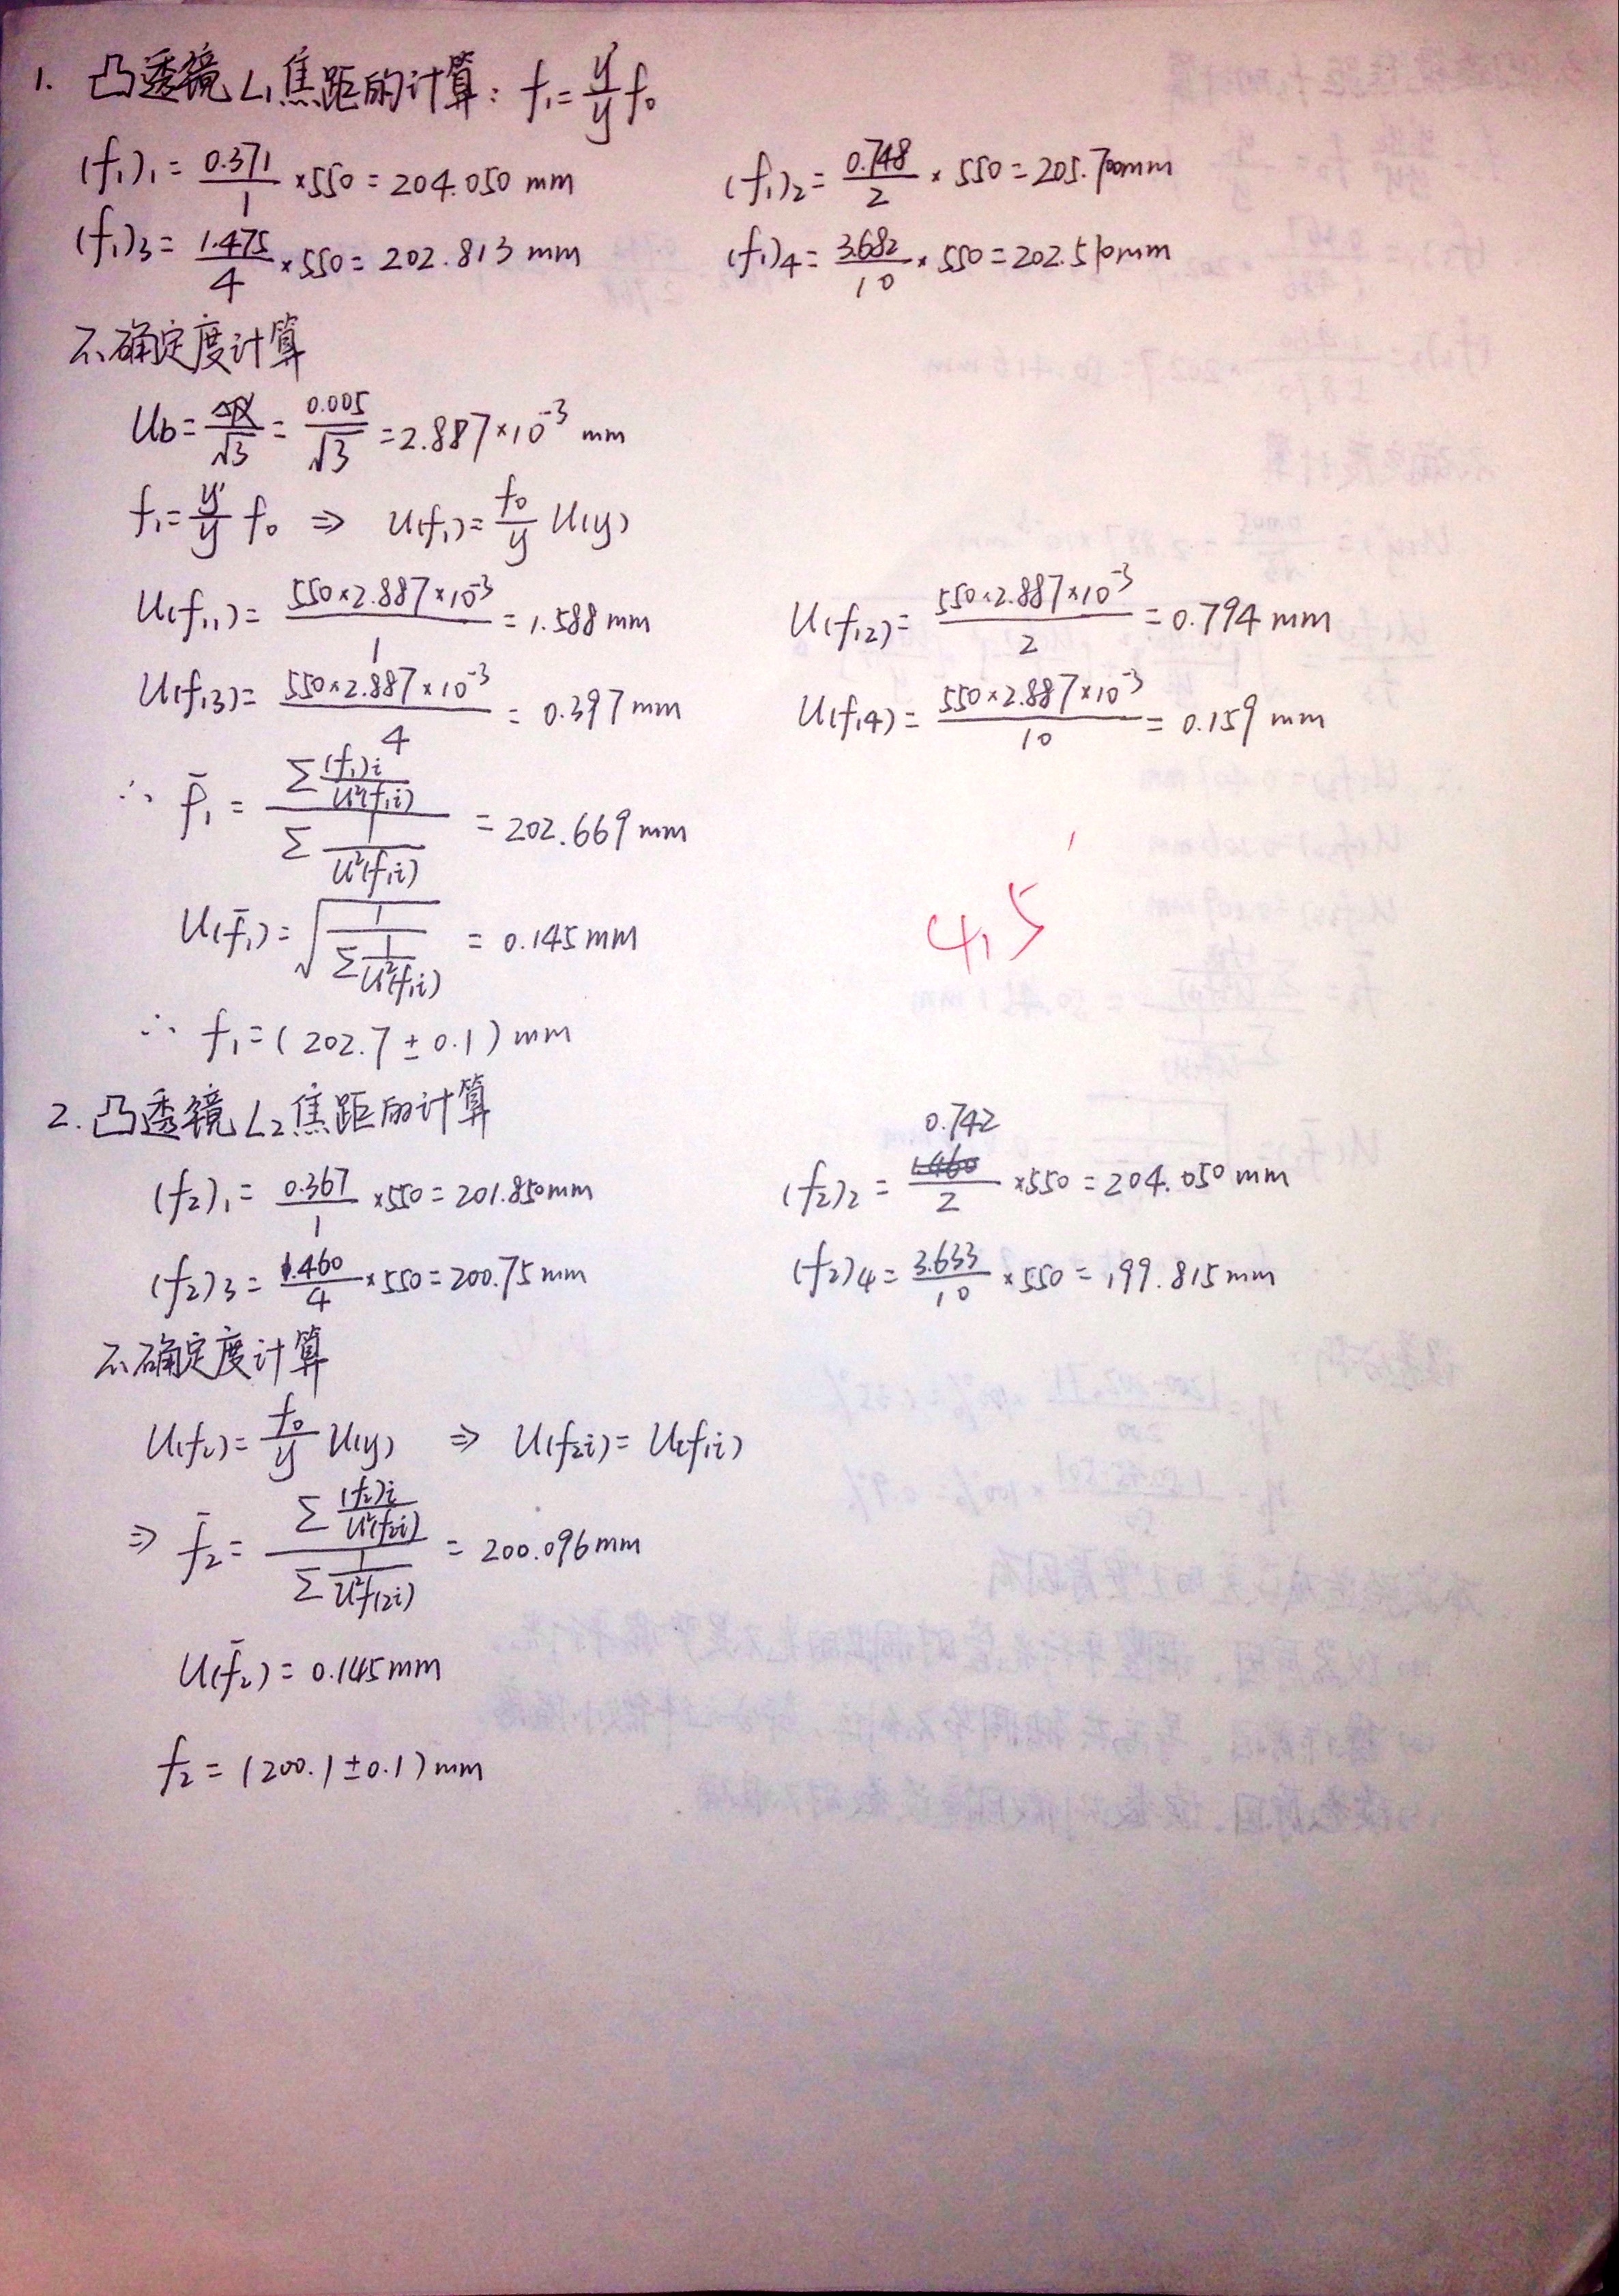 1. 凸透镜L₁焦距的计算: f₁=y'/y f₀
(f₁)₁=0.371/1 ×550=204.050 mm (f₁)₂=0.748/2 × 550=205.700mm
(f₁)₃=1.475/4 ×550=202.813 mm (f₁)₄=3.682/10 × 550=202.510mm
不确定度计算
Ub= /√3=0.005/√3=2.887×10⁻³ mm
f₁=y'/y f₀ ⇒ U(f₁)=f₀/y U(y)
U(f₁₁)=550×2.887×10⁻³/1=1.588mm U(f₁₂)=550×2.887×10⁻³/2=0.794mm
U(f₁₃)=550×2.887×10⁻³/4=0.397mm U(f₁₄)=550×2.887×10⁻³/10=0.159mm
∴ f̄₁=Σ (f₁)i/U²(f₁i) / Σ 1/U²(f₁i) =202.669mm
U(f̄₁)=√(1/Σ 1/U²(f₁i)) =0.145mm
4.5
∴ f₁=(202.7±0.1)mm
2. 凸透镜L₂焦距的计算
(f₂)₁=0.367/1 ×550=201.850mm (f₂)₂=0.742/2 ×550=204.050mm
(f₂)₃=1.460/4 ×550=200.75mm (f₂)₄=3.633/10 ×550=199.815mm
不确定度计算
U(f₂)=f₀/y U(y) ⇒ U(f₂i)=U(f₁i)
⇒ f̄₂=Σ (f₂)i/U²(f₂i) / Σ 1/U²f(2i) =200.096mm
U(f̄₂)=0.145mm
f₂=(200.1±0.1)mm